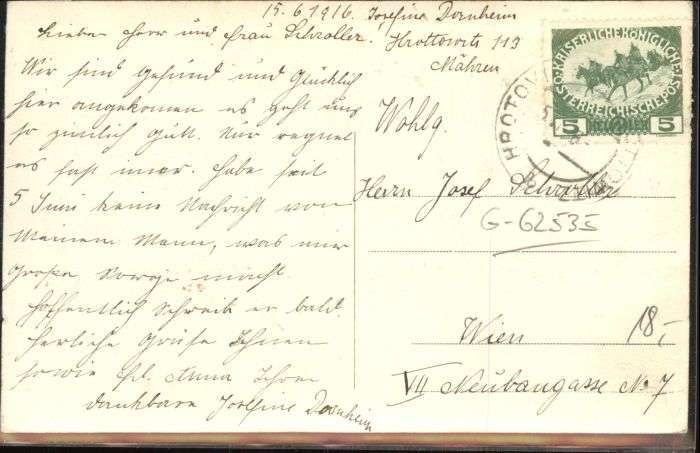 15.6.1916. Josefine Dornheim
Hrottowitz 113
Mähren
Lieber Herr und Frau Schraller.
Wir sind gesund und Glücklich
hier angekommen es geht uns
so zimlich gutt. Nur regnet
es fast imer. habe seit
5 Juni keine Nachricht von
Meinem Mann, was mir
großen Sorge macht.
hoffentlich Schreib er bald.
herliche Grüße Ihnen
sowie Frl. Anna Ihre
dankbare Josefine Dornheim
KAISERLICHE KÖNIGLICHE
ÖSTERREICHISCHE POST
5 5
HROTOW
Wohlg.
Herrn Josef Schraller
G-62535
Wien 18,-
VII Neubaugasse No 7